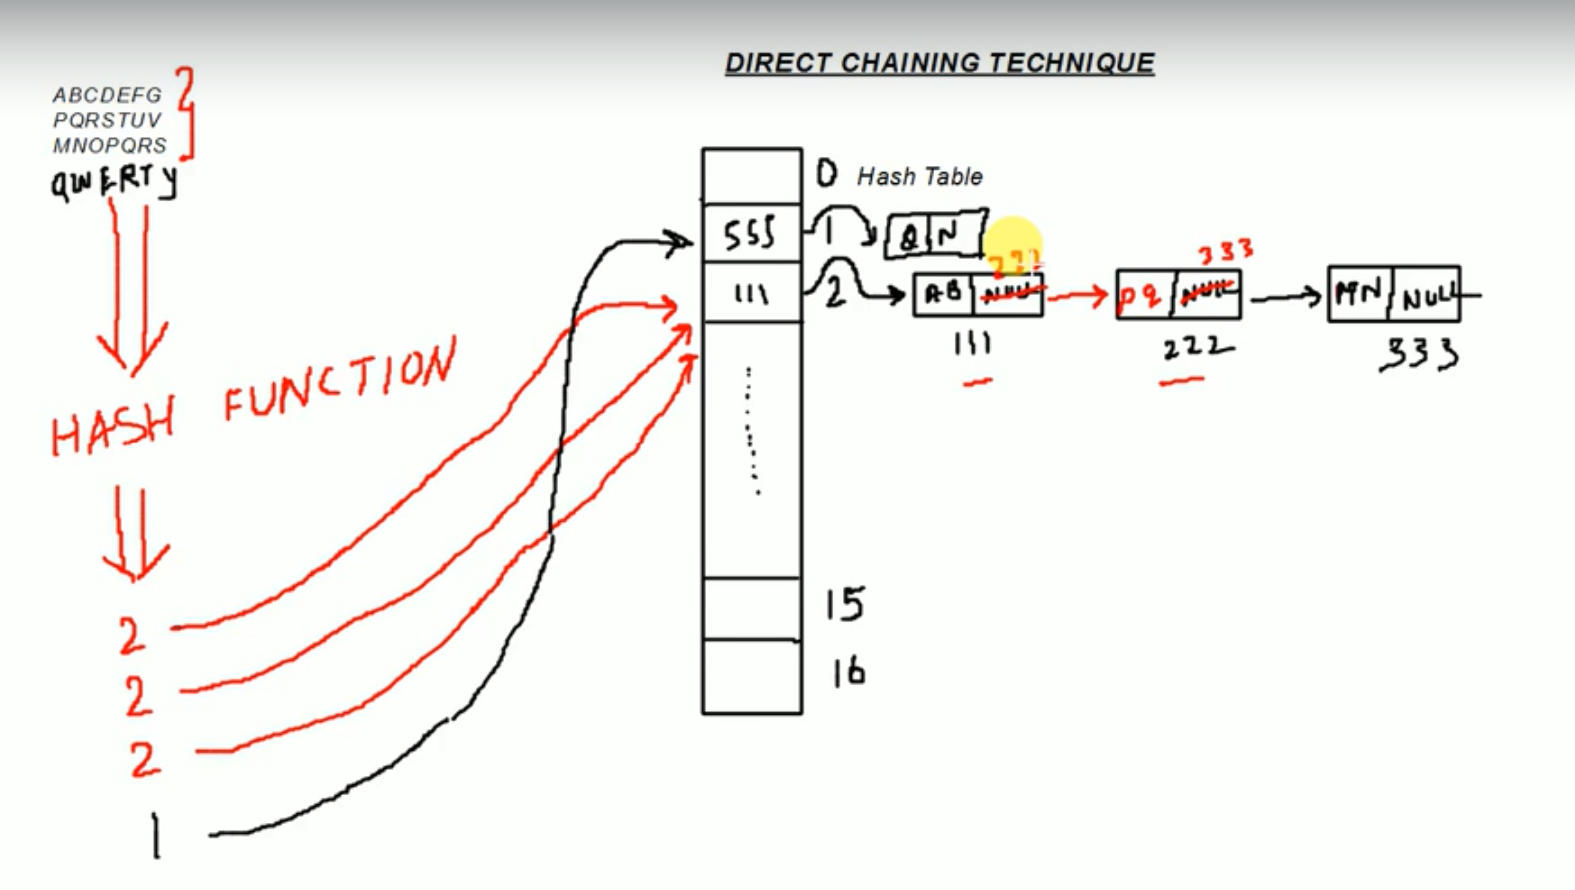 DIRECT CHAINING TECHNIQUE
ABCDEFG
PQRSTUV
MNOPQRS
QWERTY
HASH FUNCTION
2
2
2
1
0 Hash Table
555 1 Q N
111 2 AB NULL 222 PQ NULL 333 MN NULL
111 222 333
15
16